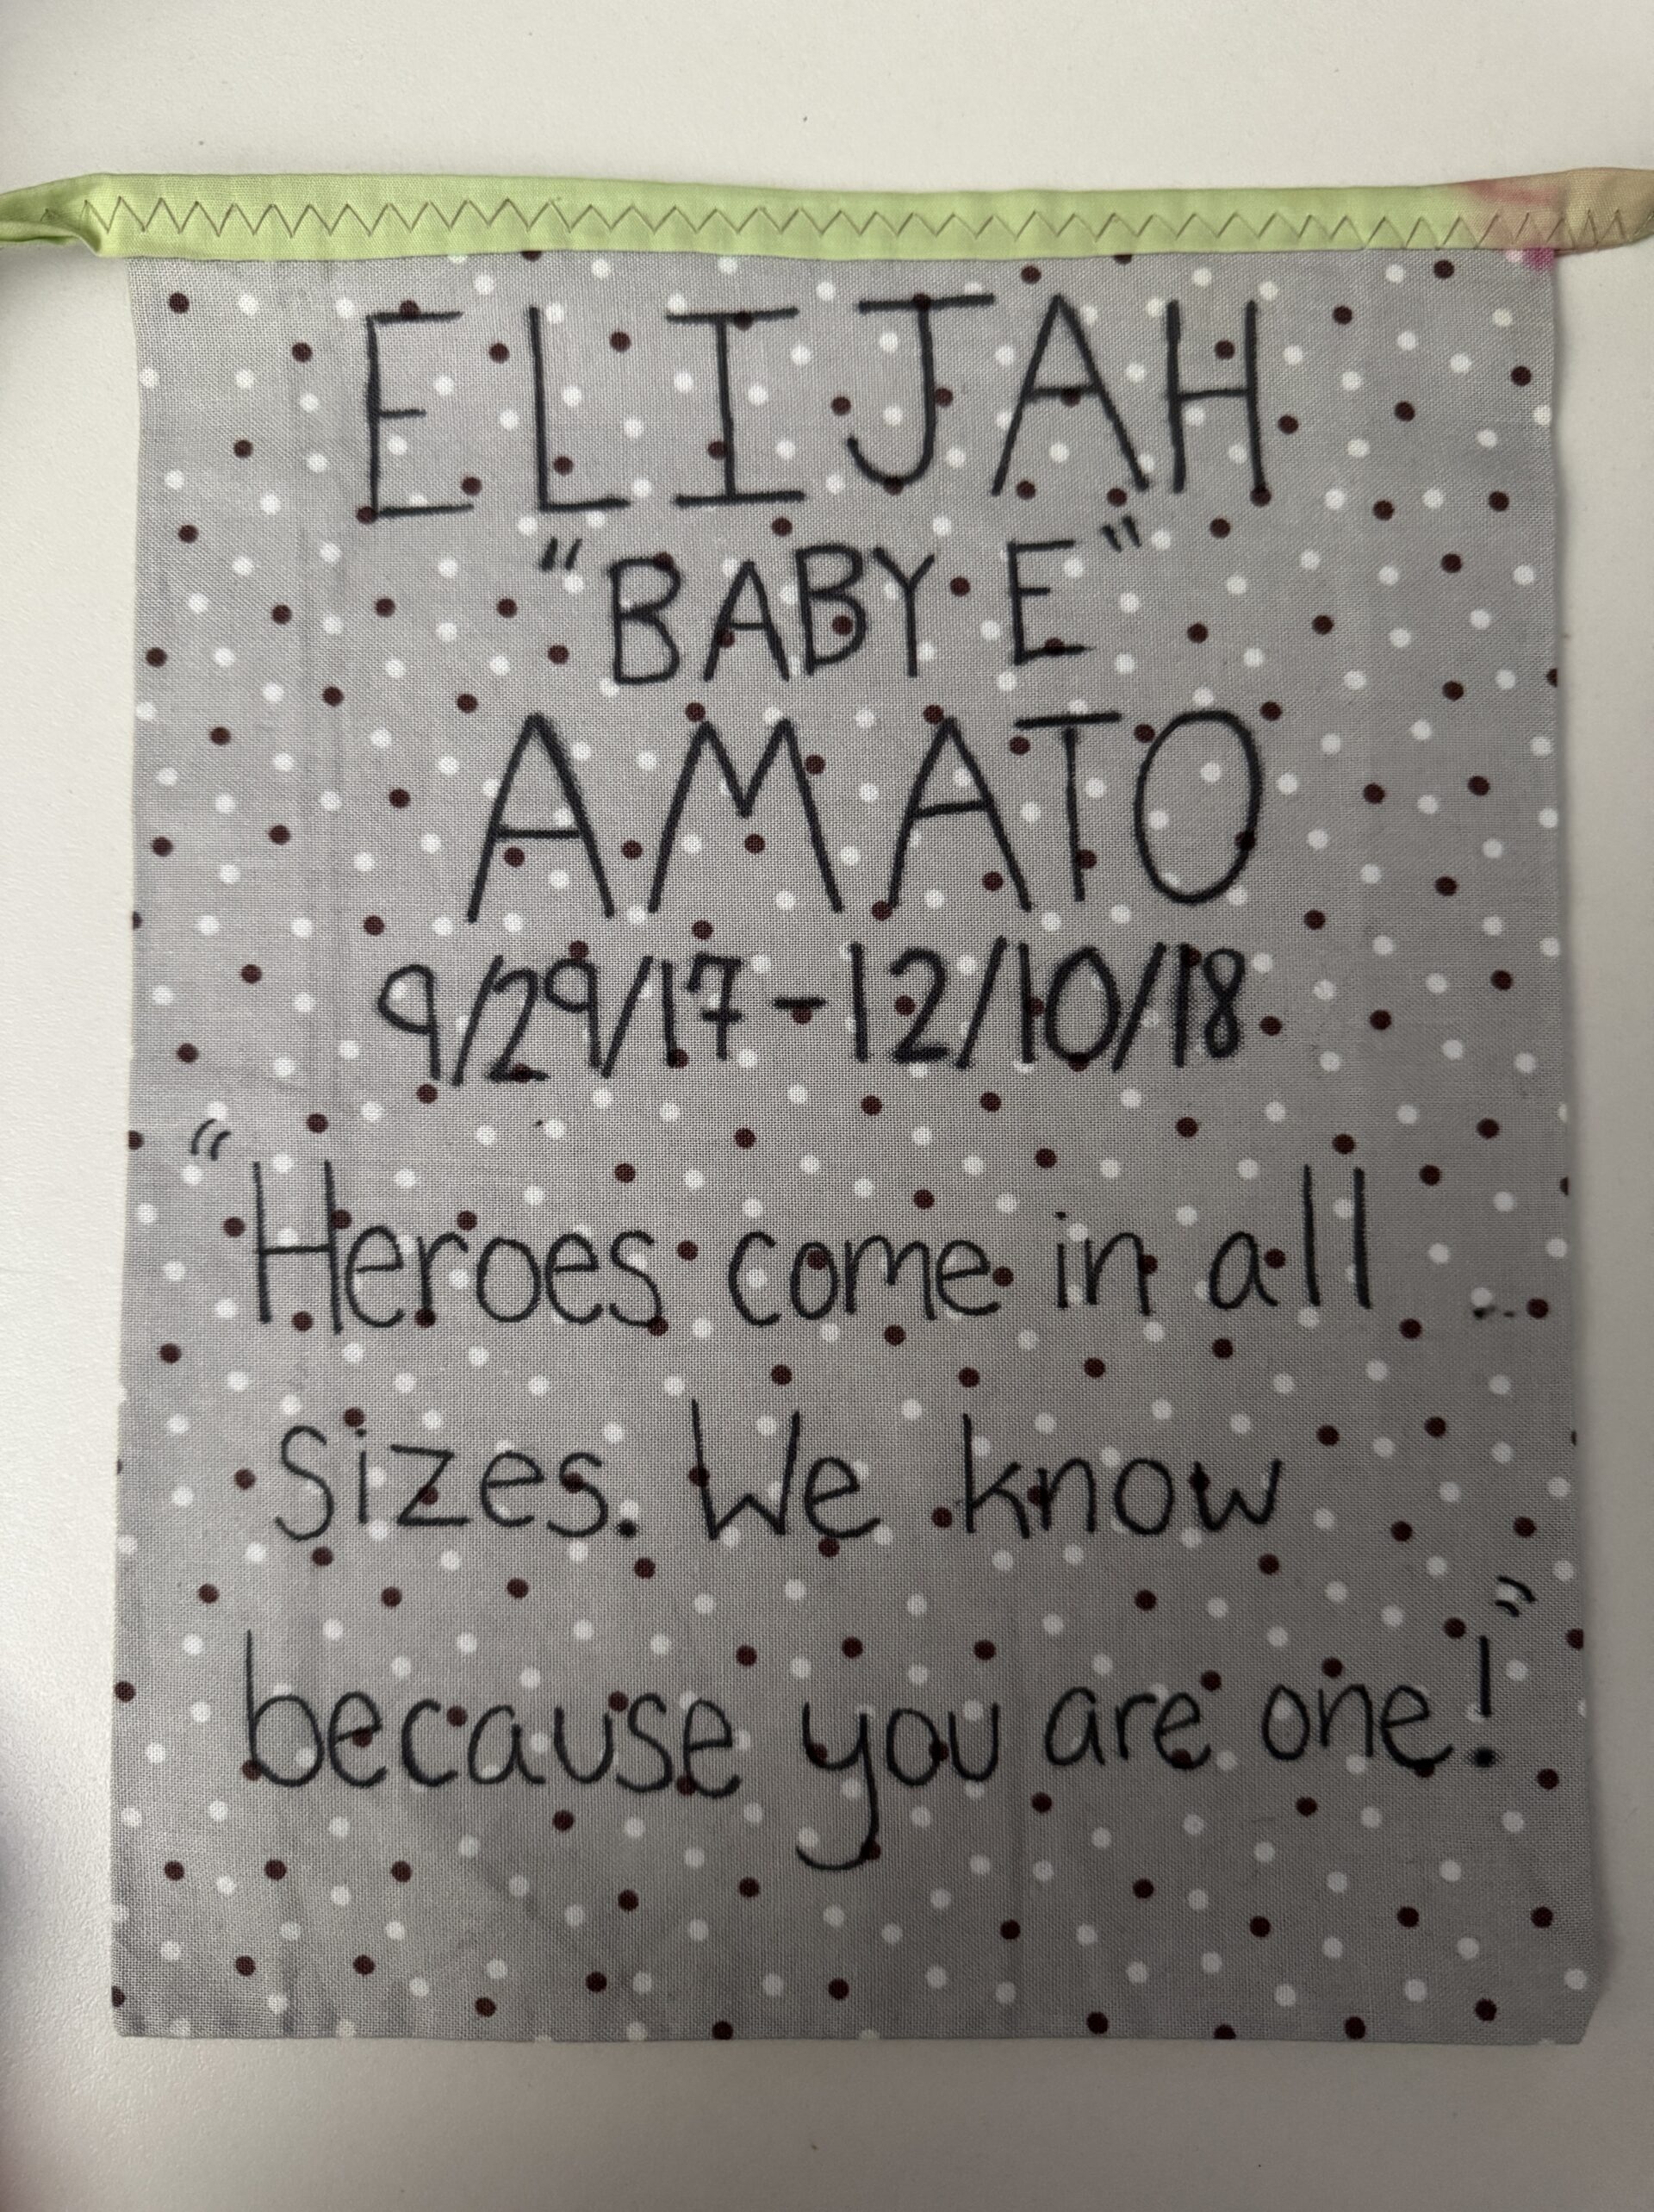 ELIJAH
"BABY E"
AMATO
9/29/17-12/10/18
"Heroes come in all
sizes. We know
because you are one!"